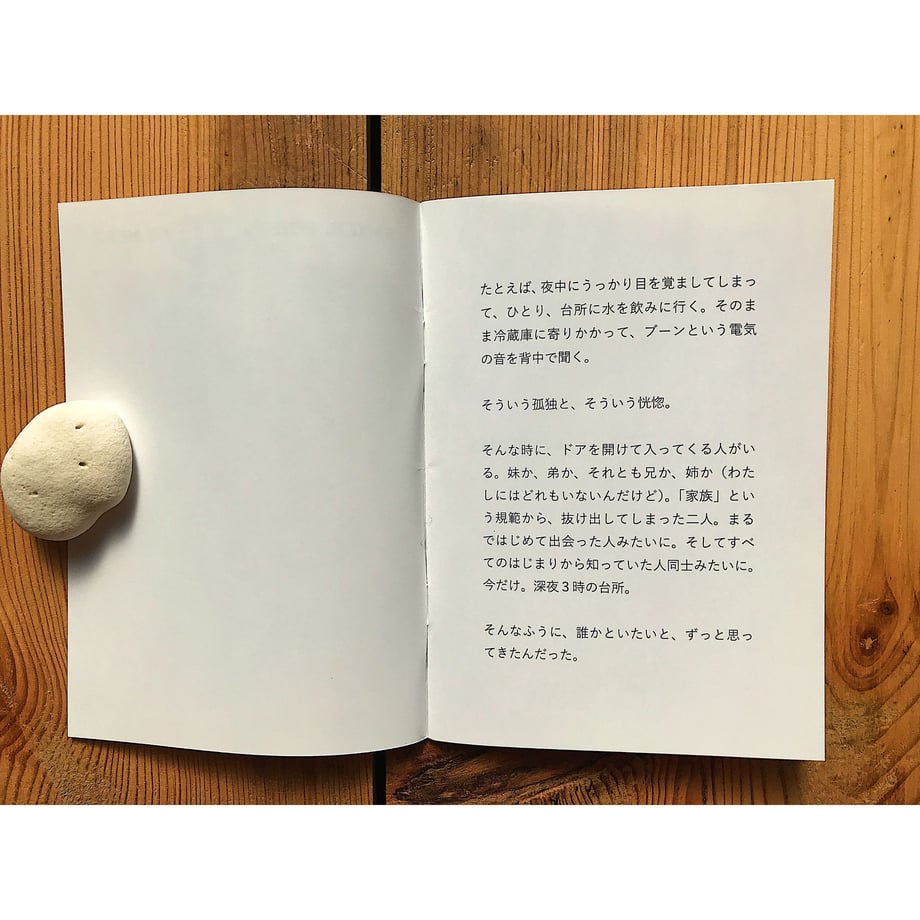 たとえば、夜中にうっかり目を覚ましてしまっ
て、ひとり、台所に水を飲みに行く。そのま
ま冷蔵庫に寄りかかって、ブーンという電気
の音を背中で聞く。
そういう孤独と、そういう恍惚。
そんな時に、ドアを開けて入ってくる人がい
る。妹か、弟か、それとも兄か、姉か（わた
しにはどれもいないんだけど）。「家族」とい
う規範から、抜け出してしまった二人。まる
ではじめて出会った人みたいに。そしてすべ
てのはじまりから知っていた人同士みたいに。
今だけ。深夜３時の台所。
そんなふうに、誰かといたいと、ずっと思っ
てきたんだった。